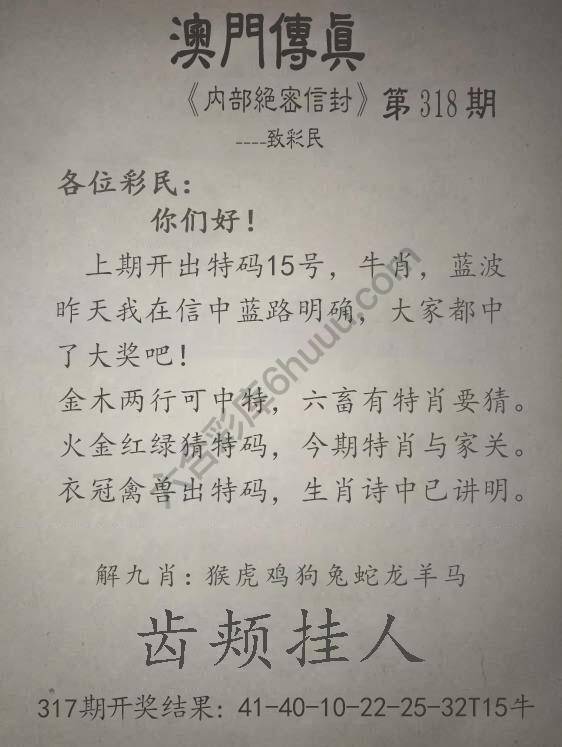 澳門傳眞
《内部絕密信封》第318期
----致彩民
各位彩民：
你们好！
上期开出特码15号，牛肖，蓝波
昨天我在信中蓝路明确，大家都中
了大奖吧！
金木两行可中特，六畜有特肖要猜。
火金红绿猜特码，今期特肖与家关。
衣冠禽兽出特码，生肖诗中已讲明。
解九肖：猴虎鸡狗兔蛇龙羊马
齿颊挂人
317期开奖结果：41-40-10-22-25-32T15牛
六合彩库6huuu.com